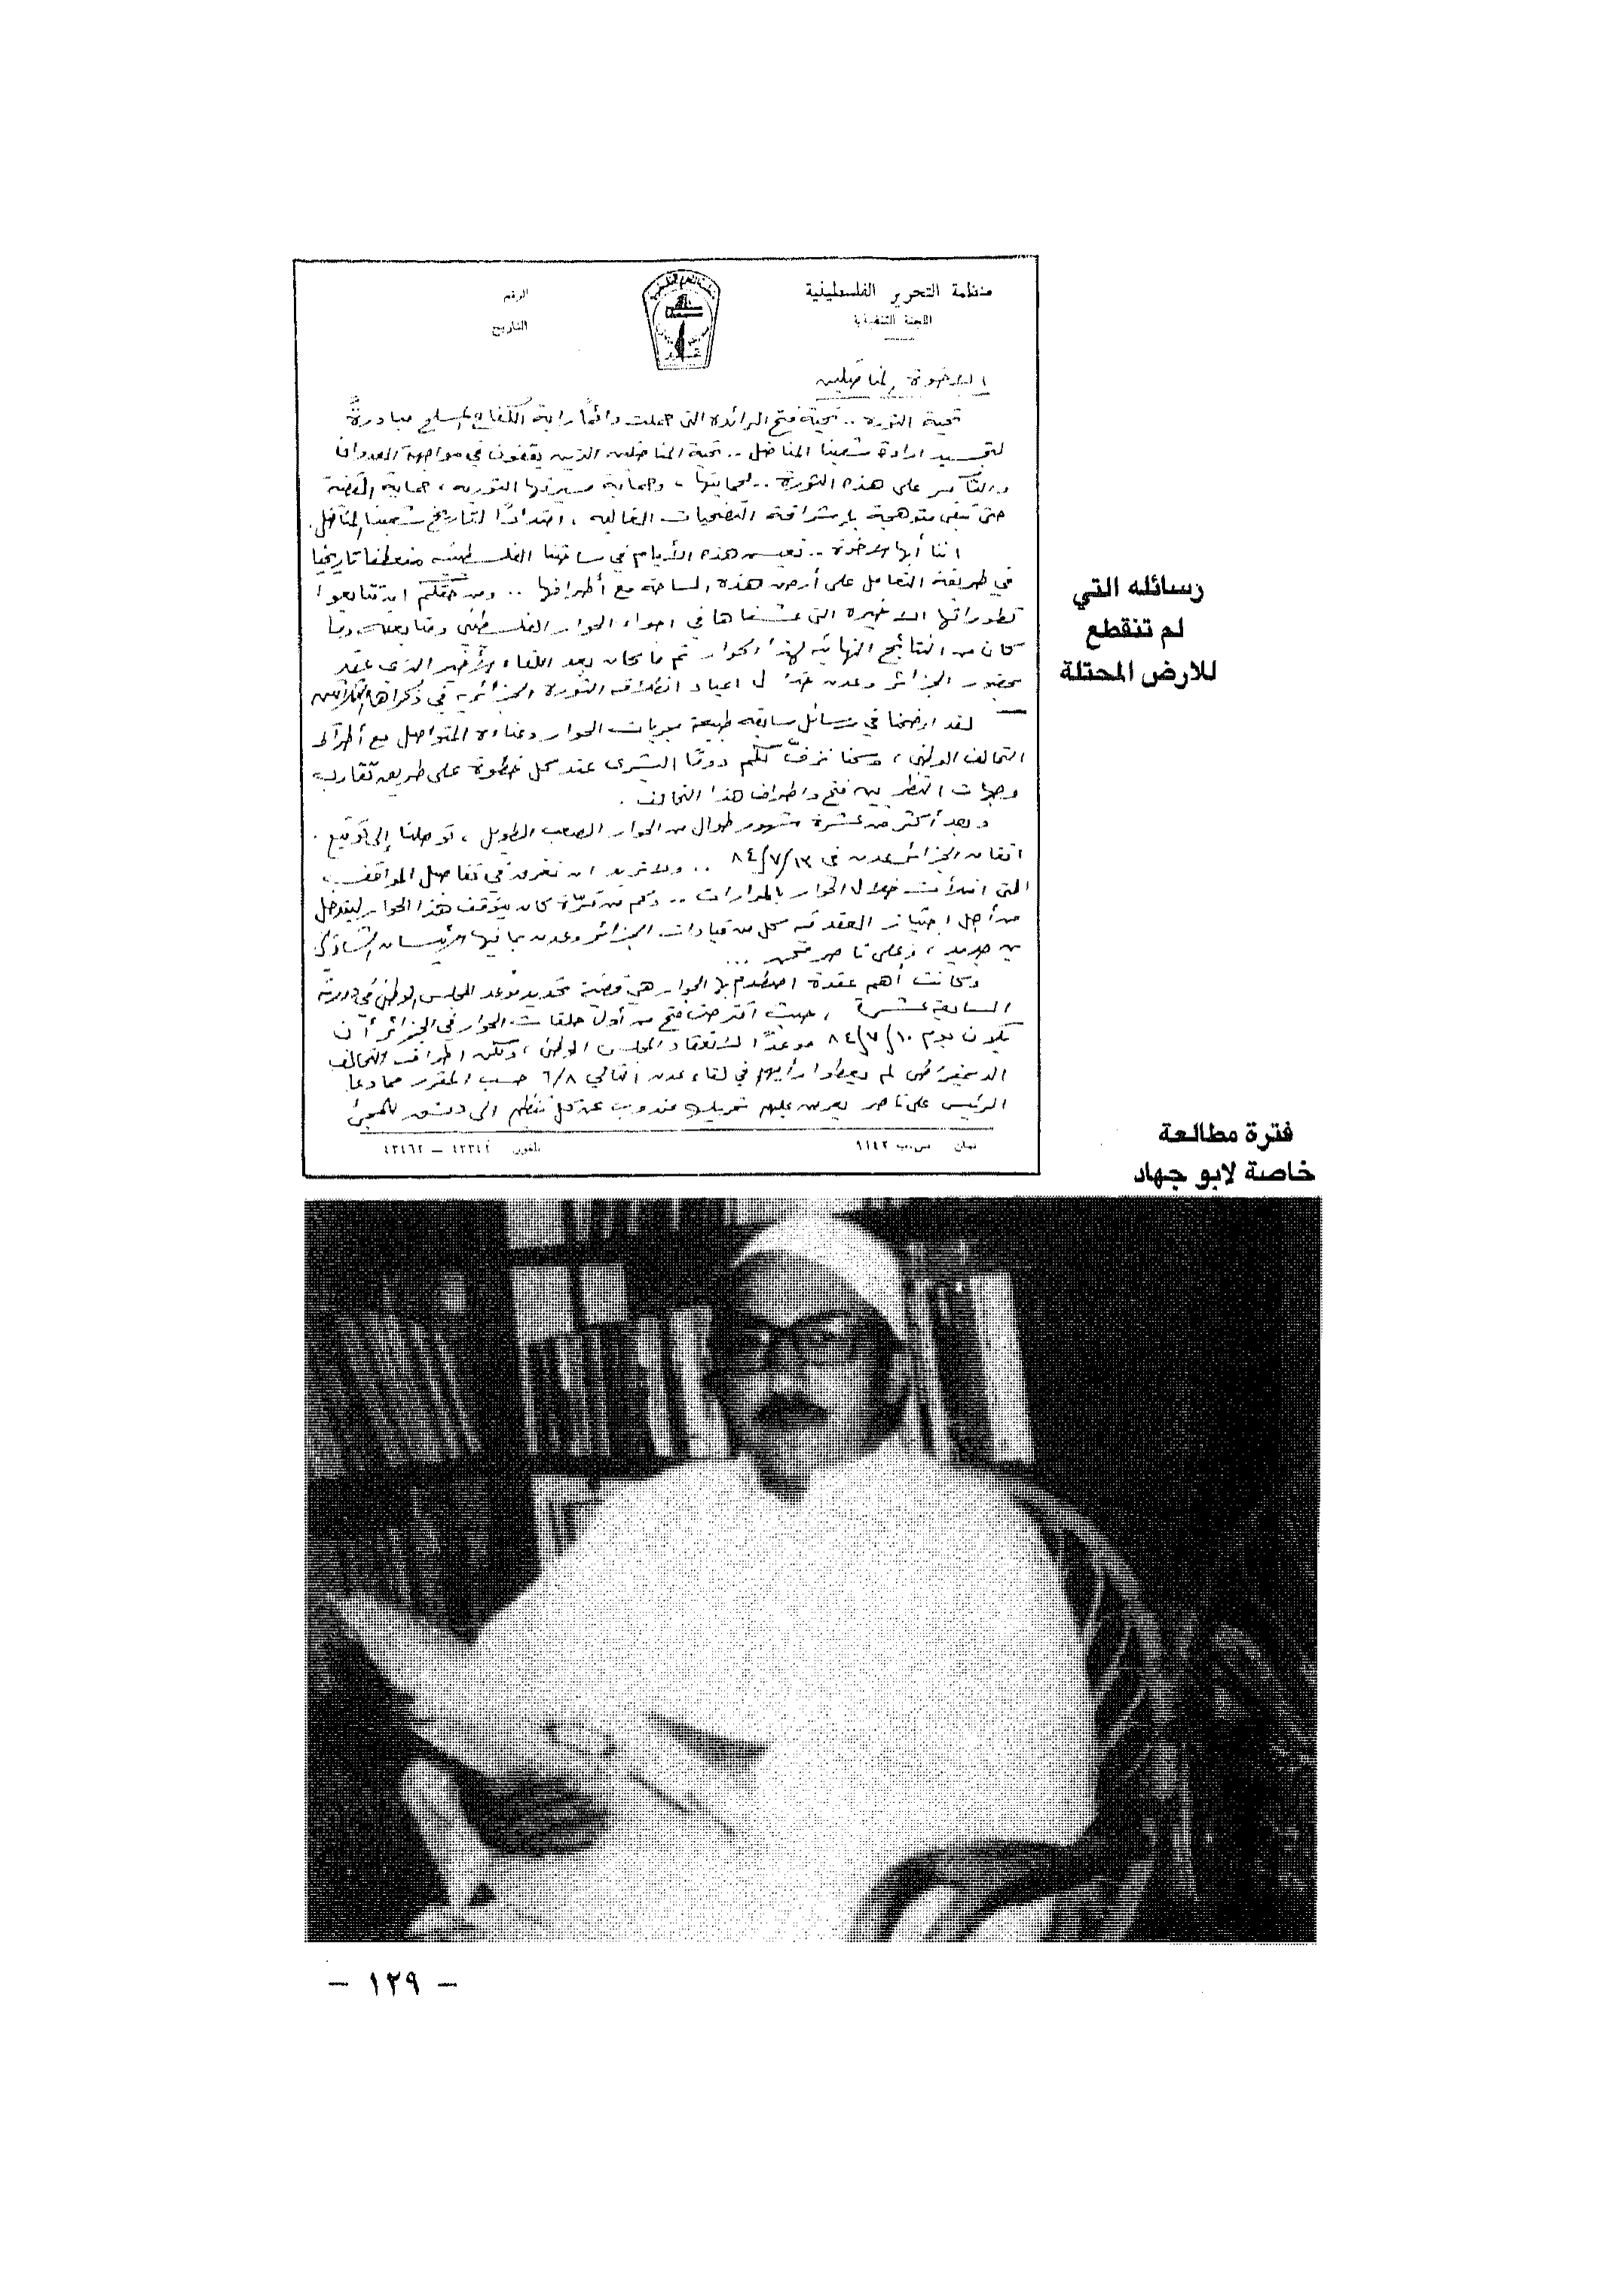 منظمة التحرير الفلسطينية
اللجنة التنفيذية
الرقم
التاريخ
الاخوة المناضلين
تحية الثورة .. تحية فتح الرائدة التي حملت دائماً راية الكفاح المسلح مبادرةً
لتجسيد ارادة شعبنا المناضل .. تحية المناضلين الذين يقفون في مواجهة العدوان
والتآمر على هذه الثورة .. لحمايتها ، وحماية مسيرتها الثورية ، حماية القضية
حتى تبقى متوهجة بإشراقة التضحيات الغالية ، امتدادًا لتاريخ شعبنا المناضل .
اننا أيها الاخوة .. نعيش هذه الأيام في ساحتنا الفلسطينية منعطفا تاريخيا
في طريقة التعامل على أرض هذه الساحة مع أطرافها .. ومن حقكم ان تتابعوا
تطوراتها الاخيرة التي عشناها في اجواء الحوار الفلسطيني ومتابعته وما
كان من النتائج النهائية لهذا الحوار ثم ما كان بعد اللقاء الأخير الذي عقد
بحضور الجزائر وعدن خلال اعياد انطلاقة الثورة الجزائرية في ذكراها الثلاثين
لقد اوضحنا في رسائل سابقة طبيعة مجريات الحوار وعناءه المتواصل مع أطراف
التحالف الوطني ، وكنا نزفّ لكم دومًا البشرى عند كل خطوة على طريق تقارب
وجهات النظر بين فتح واطراف هذا التحالف .
وبعد أكثر من عشرة شهور طوال من الحوار الصعب الطويل ، توصلنا إلى توقيع
اتفاق الجزائر عدن في ٨٤/٧/١٣ .. ولا نريد ان نغرق في تفاصيل المواقف
التي امتلأت خلال الحوار بالمرارات .. وكم من مرّة كان يتوقف هذا الحوار ليتدخل
من أجل اجتياز العقد فيه كل من قيادات الجزائر وعدن بما فيها الرئيسان الشاذلي
بن جديد ، وعلي ناصر محمد ...
وكانت أهم عقدة اصطدم بها الحوار هي قضية تحديد موعد المجلس الوطني في دورته
السابعة عشرة ، حيث اقترحت فتح من أول حلقات الحوار في الجزائر أن
يكون يوم ٨٤/٧/١٠ موعدًا لانعقاد المجلس الوطني ، ولكن اطراف التحالف
الديمقراطي لم يعطوا رأيهم في لقاء عدن التالي ٦/٨ حسب المقرر مما دعا
الرئيس علي ناصر يعرض عليهم تحريك مندوب عن كل تنظيم الى دمشق للمجيئ
عمان ص.ب ٩١٤٢
تلفون
رسائله التي
لم تنقطع
للارض المحتلة
فترة مطالعة
خاصة لابو جهاد
- ١٢٩ -